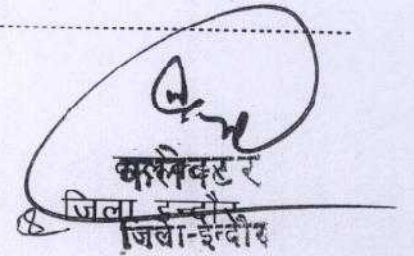 कलेक्टर
जिला इन्दौर
जिला-इन्दौर